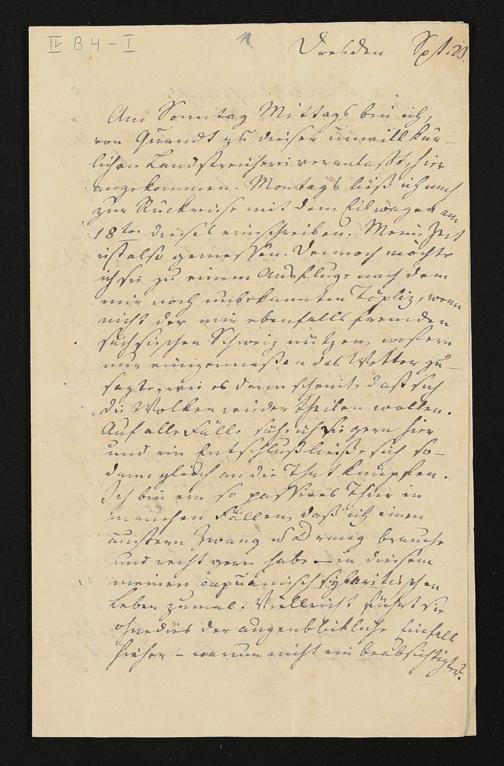 IV B 4 - I
Dresden Spt. 20.
Am Sonntag Mittags bin ich,
von Quandt zu dieser unwillkür-
lichen Landstreicherei veranlaßt, hier
angekommen. Montags ließ ich mich
zur Rückreise mit dem Eilwagen am
18ten dieses einschreiben. Meine Zeit
ist also gemessen. Dennoch möchte
ich sie zu einem Ausfluge nach dem
mir noch unbekannten Töpliz, wenn
nicht der mir ebenfalls fremden
sächsischen Schweiz nützen, wofern
mir einigermaßen das Wetter zu-
sagte, wie es denn scheint daß sich
die Wolken wieder theilen wollen.
Auf alle Fälle sähe ich Sie gern hier
und ein Entschluß ließe sich so-
dann gleich an die That knüpfen.
Ich bin ein so passives Thier in
manchen Fällen, daß ich einen
äußern Zwang u Drang brauche
und recht gern habe – in diesem
meinem capuanisch sybaritischen
Leben zumal. Vielleicht führt Sie
ohnedies der augenblickliche Einfall
hieher – warum nicht ein beabsichtigter?